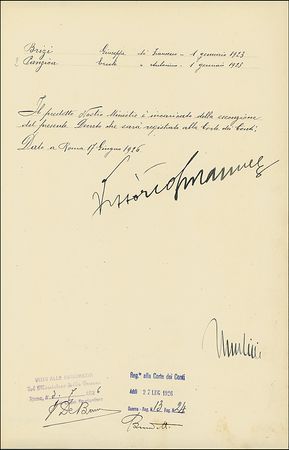 Brizi Giuseppe di Francesco - 1 gennaio 1923
Ercole " Antonino - 1 gennaio 1923
Il predetto Nostro Ministro è incaricato della esecuzione
del presente Decreto che sarà registrato alla Corte dei Conti.
Dato a Roma 17 Giugno 1926.
Vittorio Emanuele
Mussolini
Reg.to alla Corte dei Conti
Addì 27 LUG. 1926
Guerra - Reg. N. 13 Fog.